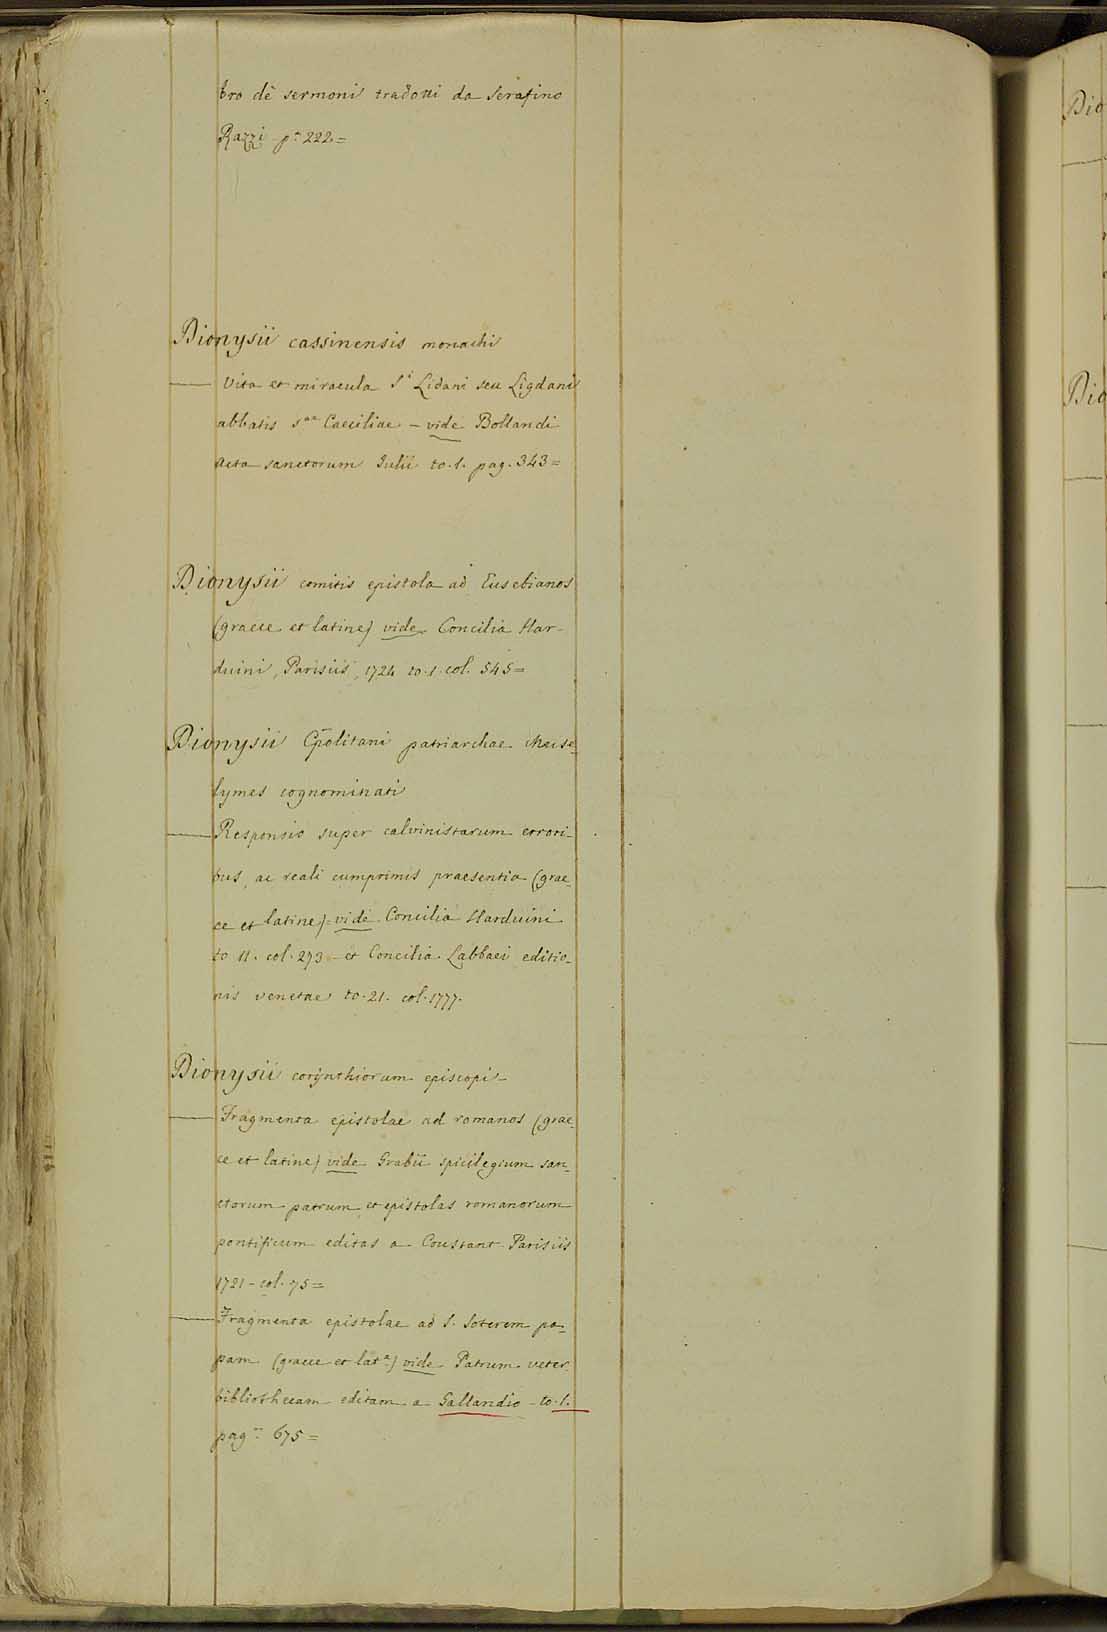 bro dè sermoni tradotti da Serafino
Razzi pa 222=
Dionysii cassinensis monachi
Vita et miracula Si Lidani seu Ligdani
abbatis sae Caeciliae - vide Bollandi
Acta sanctorum Julii to. 1. pag. 343=
Dionysii comitis epistola ad Eusebianos
(graece et latine) vide Concilia Har-
duini, Parisiis, 1724 to. 1. col. 545=
Dionysii Cpolitani patriarchae
lymes cognominati
Responsio super calvinistarum errori-
bus, ac reali cumprimis praesentia (grae-
ce et latine) = vide Concilia Harduini
to 11. col. 273 - et Concilia Labbaei editio-
nis venetae to. 21. col. 1777.
Dionysii corynthiorum episcopi
Fragmenta epistolae ad romanos (grae-
ce et latine) vide Grabii spicilegium san-
ctorum patrum et epistolas romanorum
pontificum editas a Coustant Parisiis
1721 - col. 75=
Fragmenta epistolae ad S. Soterem pa-
pam (graece et lat.e) vide Patrum veter.
bibliothecam editam a Gallandio - to. 1.
pag. 675=
Dio
Dio